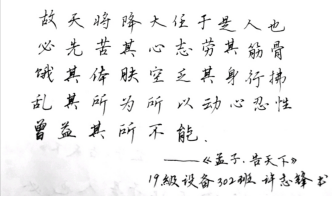 故天将降大任于是人也
必先苦其心志劳其筋骨
饿其体肤空乏其身行拂
乱其所为所以动心忍性
曾益其所不能.
——《孟子·告天下》
19级设备302班 许志锋书